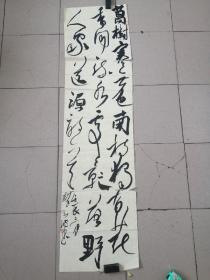 萬樹寒無色南枝獨有花
香聞流水處影落野
人家道源